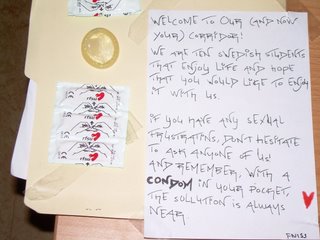 WELCOME TO OUR (AND NOW
YOUR) CORRIDOR!
WE ARE TEN SWEDISH STUDENTS
THAT ENJOY LIFE AND HOPE
THAT YOU WOULD LIKE TO ENJOY
IT WITH US.
IF YOU HAVE ANY SEXUAL
FRUSTRATIONS, DON'T HESITATE
TO ASK ANYONE OF US!
AND REMEMBER, WITH A
CONDOM IN YOUR POCKET,
THE SOLLUTION IS ALWAYS
NEAR.